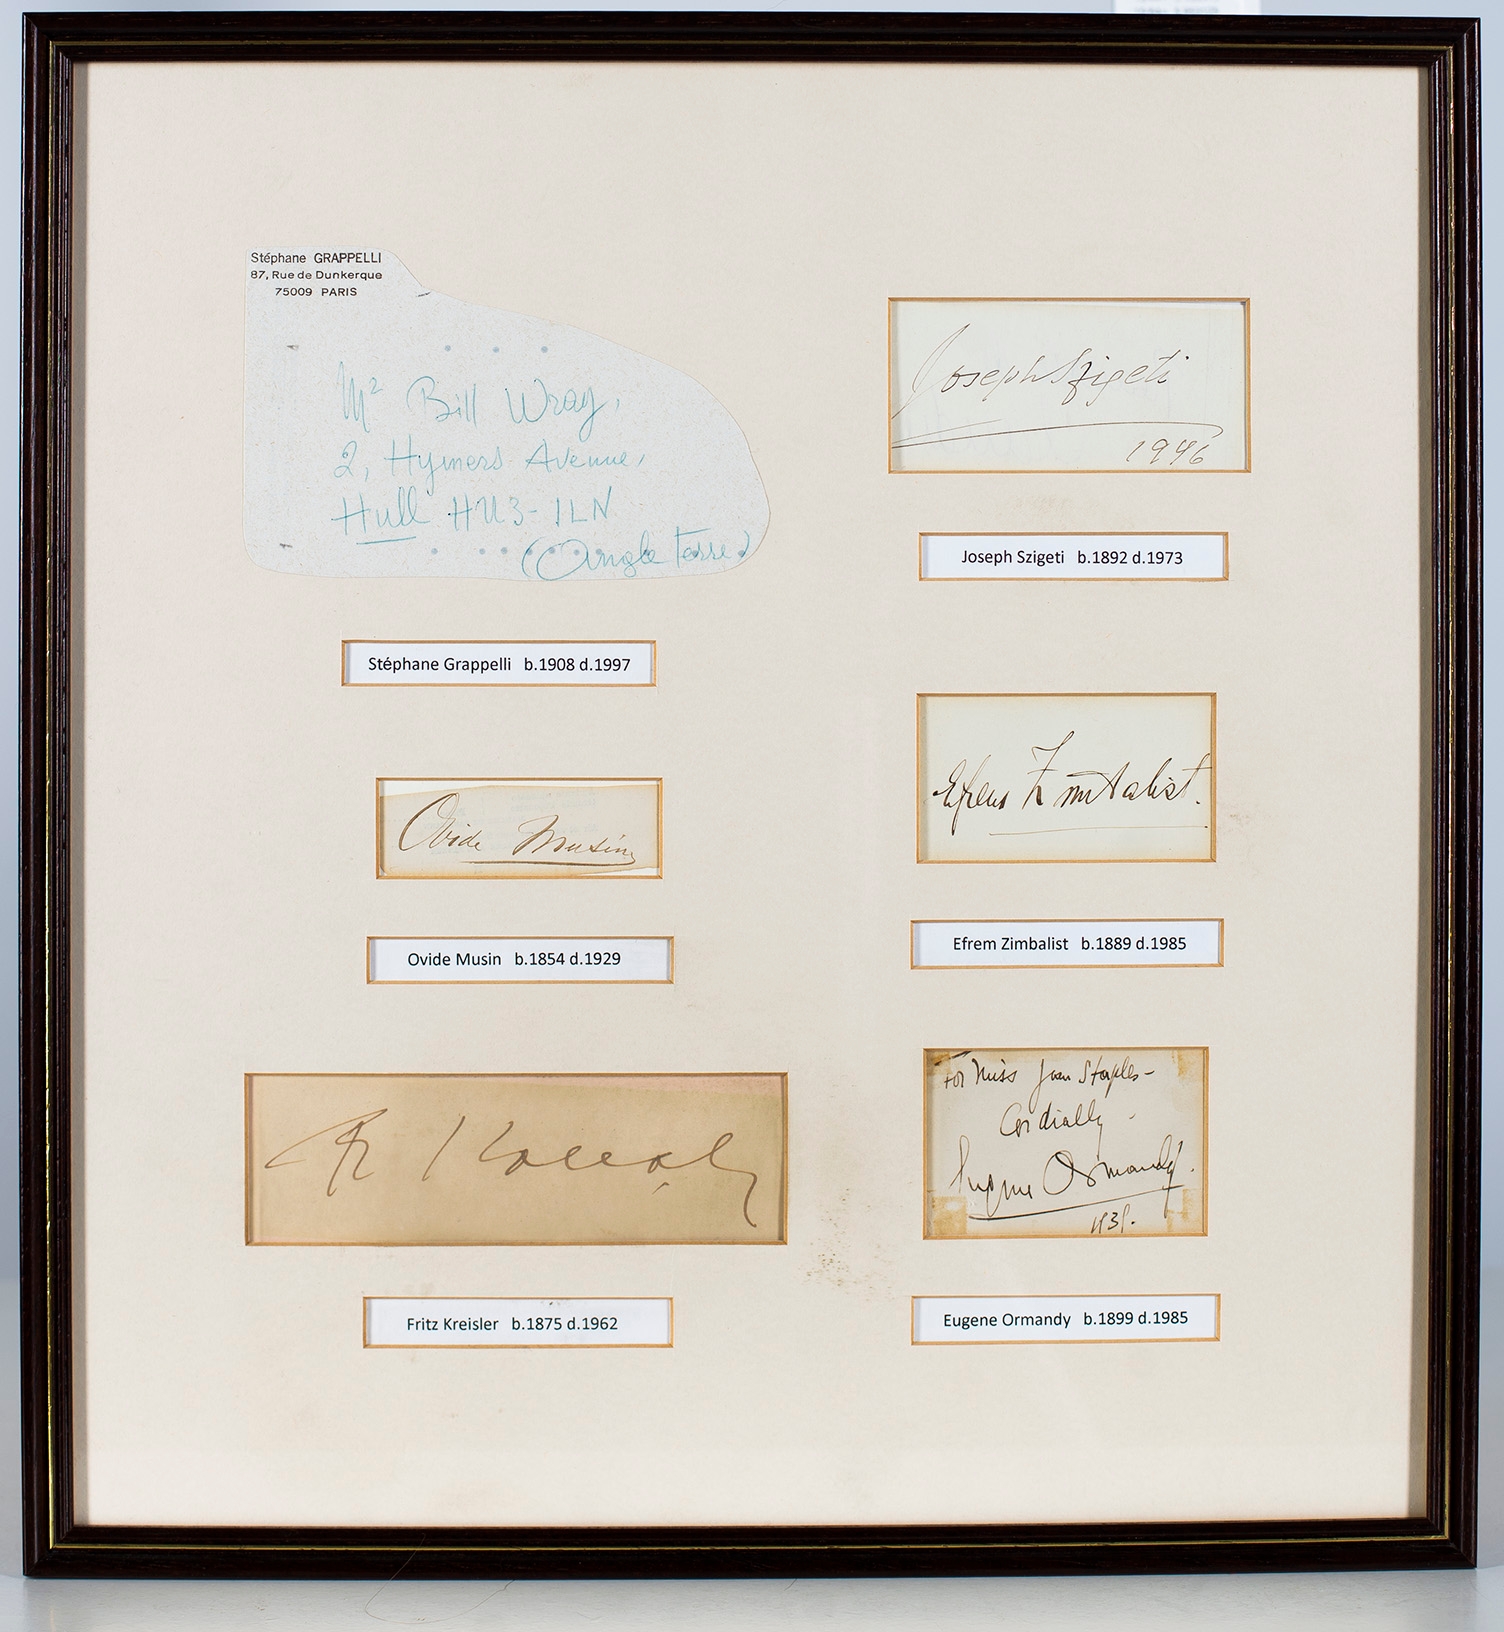 Stéphane GRAPPELLI
87, Rue de Dunkerque
75009 PARIS
Mr Bill Wray,
2, Hymers Avenue,
Hull HU3-1LN
(Angleterre)
Stéphane Grappelli b.1908 d.1997
Ovide Musin
Ovide Musin b.1854 d.1929
Fr Kreisler
Fritz Kreisler b.1875 d.1962
Joseph Szigeti
1946
Joseph Szigeti b.1892 d.1973
Efrem Zimbalist.
Efrem Zimbalist b.1889 d.1985
For Miss Joan Staples-
Cordially
Eugene Ormandy.
Eugene Ormandy b.1899 d.1985